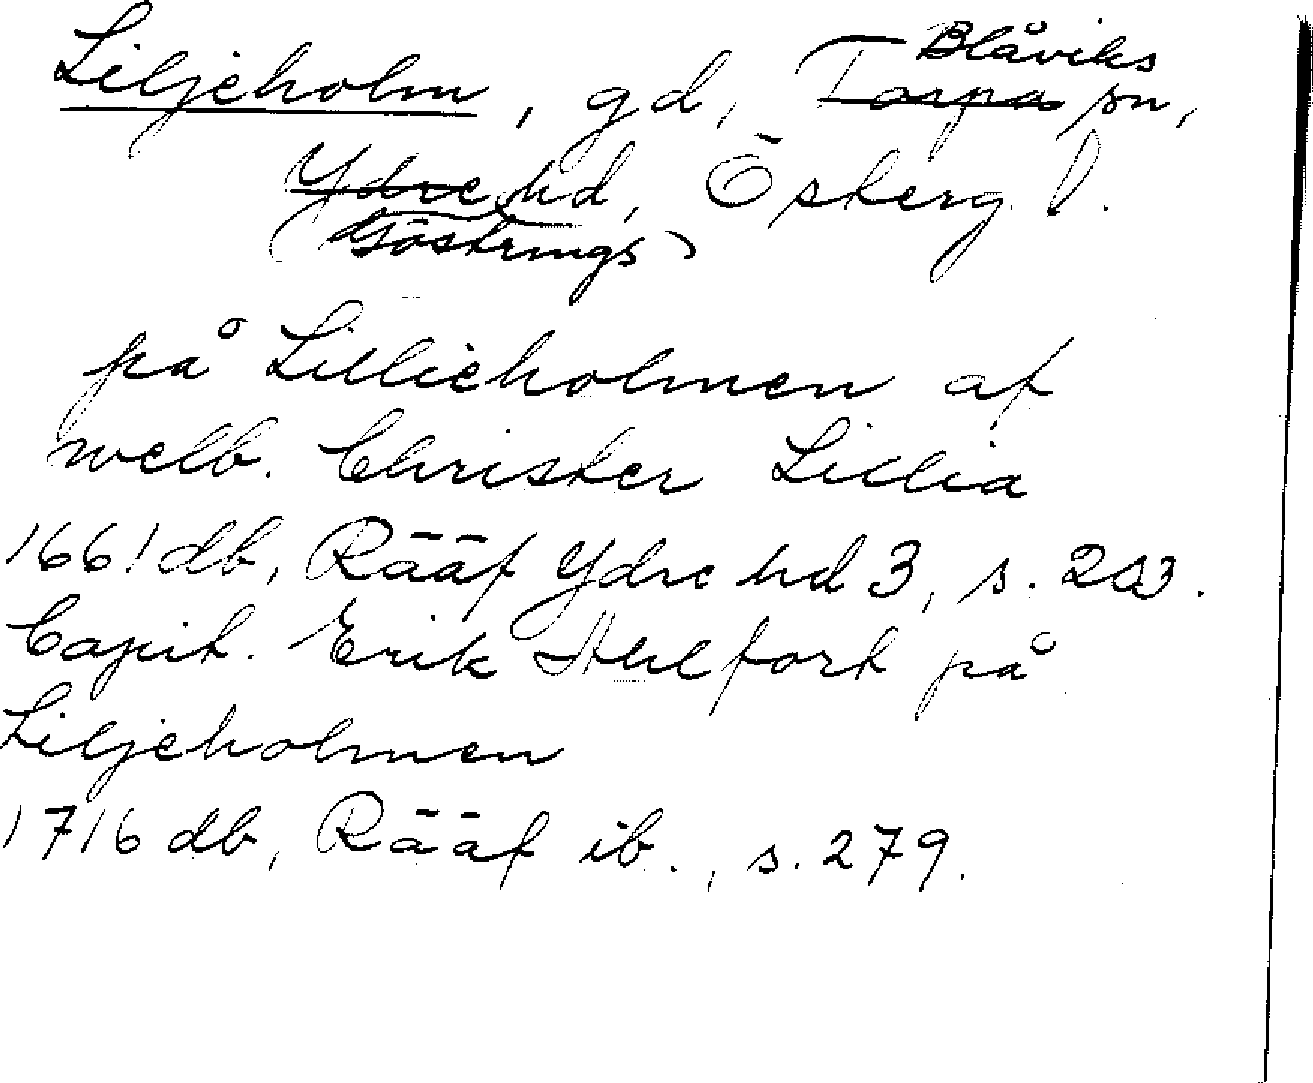 Liljeholm, gd, Torpa Blåviks sn,
Ydre hd, Österg. l.
(Göstrings)
på Lillieholmen af
welb. Christer Lillia
1661 db, Rääf Ydre hd 3, s. 253.
Capit. Erik Hulfort på
Liljeholmen
1716 db, Rääf ib., s. 279.